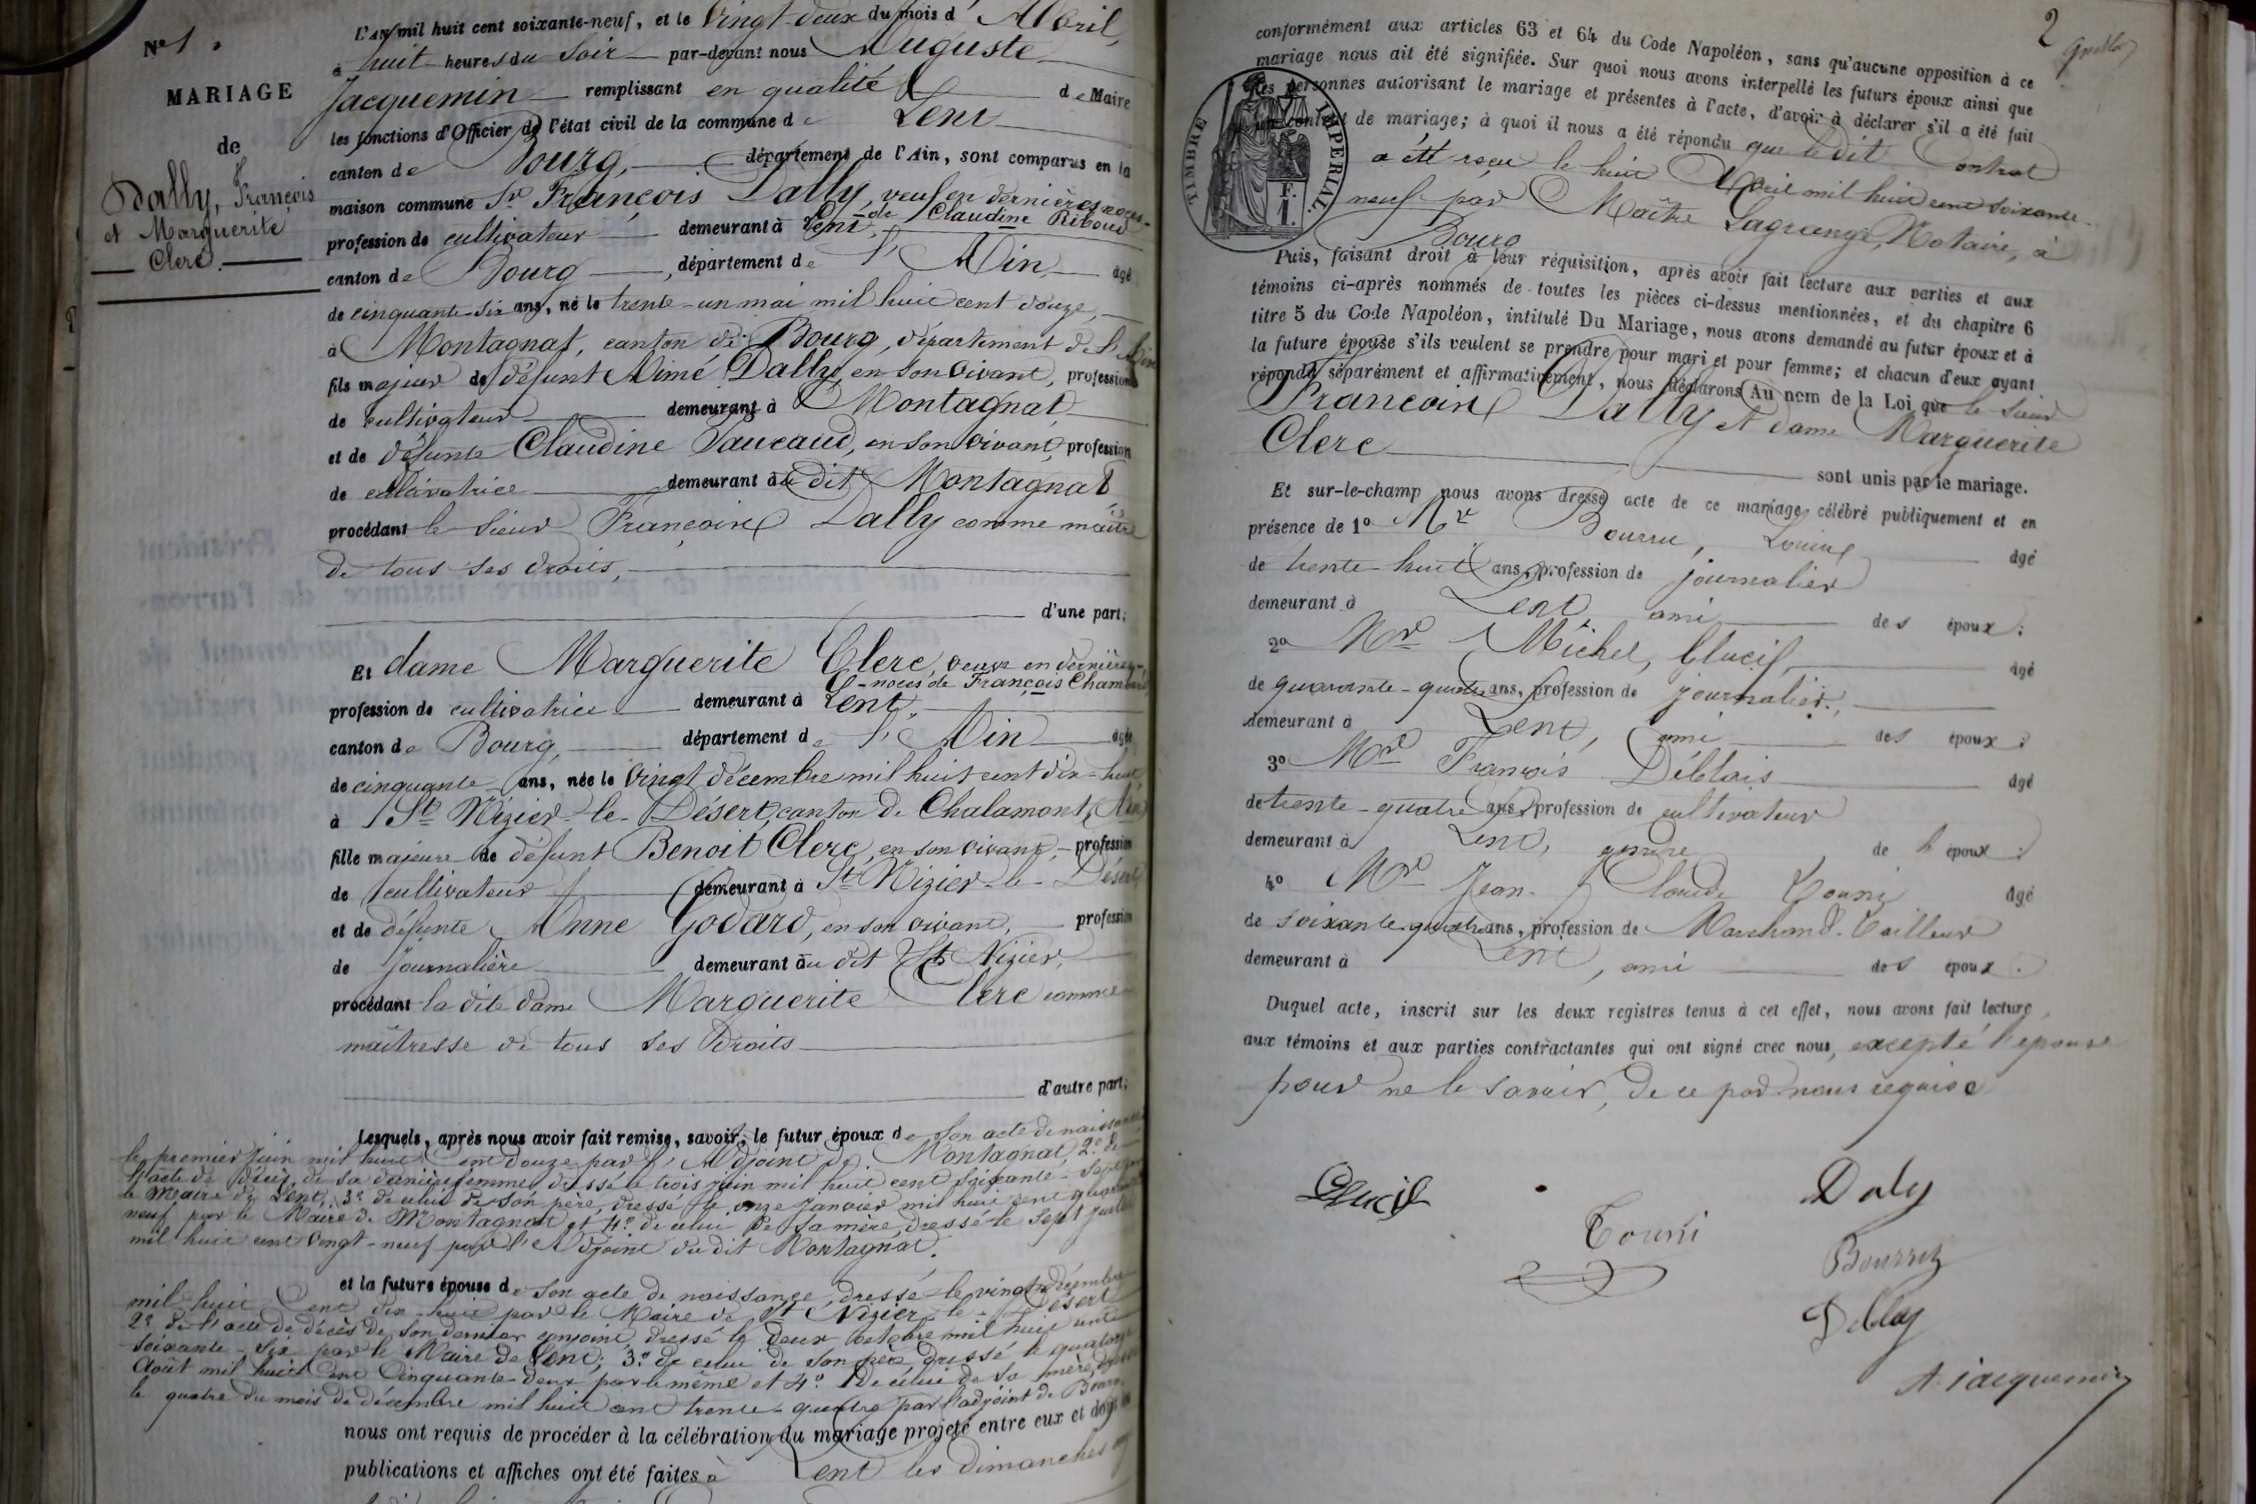 N° 1.
MARIAGE
de
Dally, François
et Marguerite
Clerc.
L'AN mil huit cent soixante-neuf, et le Vingt-deux du mois d' Avril,
à huit heures du soir par-devant nous Auguste
Jacquemin remplissant en qualité de Maire
les fonctions d'Officier de l'état civil de la commune de Lent
canton de Bourg, département de l'Ain, sont comparus en la
maison commune Sr François Dally, veuf en dernières noces
de Claudine Riboud
profession de cultivateur demeurant à Lent,
canton de Bourg, département de l'Ain âgé
de cinquante-six ans, né le trente-un mai mil huit cent douze,
à Montagnat, canton de Bourg, département de l'Ain
fils majeur de défunt Aimé Dally, en son vivant, profession
de cultivateur demeurant à Montagnat
et de défunte Claudine Saucaud, en son vivant, profession
de cultivatrice demeurant au dit Montagnat
procédant le sieur François Dally comme maître
de tous ses droits,
d'une part;
Et dame Marguerite Clerc, veuve en dernières
noces de François Chambard
profession de cultivatrice demeurant à Lent,
canton de Bourg, département de l'Ain âgée
de cinquante ans, née le vingt décembre mil huit cent dix-huit
à St Nizier-le-Désert, canton de Chalamont, Ain
fille majeure de défunt Benoit Clerc, en son vivant, profession
de cultivateur demeurant à St Nizier-le-Désert
et de défunte Anne Godard, en son vivant, profession
de Journalière demeurant au dit St Nizier,
procédant la dite dame Marguerite Clerc comme
maîtresse de tous ses Droits
d'autre part;
Lesquels, après nous avoir fait remise, savoir, le futur époux de son acte de naissance
le premier juin mil huit cent douze par l'Adjoint de Montagnat, 2° de
l'acte de décès de sa dernière femme, dressé le trois juin mil huit cent soixante-sept par
le Maire de Lent, 3° de celui de son père, dressé le onze janvier mil huit cent quarante
neuf par le Maire de Montagnat et 4° de celui de sa mère, dressé le sept juillet
mil huit cent vingt-neuf par l'Adjoint du dit Montagnat.
et la future épouse de son acte de naissance, dressé le vingt décembre
mil huit cent dix-huit par le Maire de St Nizier-le-Désert
2° de l'acte de décès de son dernier conjoint, dressé le deux octobre mil huit cent
soixante-six par le Maire de Lent; 3° de celui de son père, dressé le quatorze
Août mil huit cent cinquante-deux par le même et 4° de celui de sa mère, dressé
le quatre du mois de décembre mil huit cent trente-quatre par l'adjoint de Bourg
nous ont requis de procéder à la célébration du mariage projeté entre eux et dont les
publications et affiches ont été faites à Lent les dimanches
2
conformément aux articles 63 et 64 du Code Napoléon, sans qu'aucune opposition à ce
mariage nous ait été signifiée. Sur quoi nous avons interpellé les futurs époux ainsi que
les personnes autorisant le mariage et présentes à l'acte, d'avoir à déclarer s'il a été fait
un contrat de mariage; à quoi il nous a été répondu que le dit Contrat
a été reçu le huit Avril mil huit cent soixante-
neuf par Maître Lagrange, Notaire, à
Bourg
TIMBRE IMPERIAL.
F.
1
Puis, faisant droit à leur réquisition, après avoir fait lecture aux parties et aux
témoins ci-après nommés de toutes les pièces ci-dessus mentionnées, et du chapitre 6
titre 5 du Code Napoléon, intitulé Du Mariage, nous avons demandé au futur époux et à
la future épouse s'ils veulent se prendre pour mari et pour femme; et chacun d'eux ayant
répondu séparément et affirmativement, nous déclarons Au nom de la Loi que le sieur
François Dally et dame Marguerite
Clerc sont unis par le mariage.
Et sur-le-champ nous avons dressé acte de ce mariage célébré publiquement et en
présence de 1° Mr Bourru, Louis âgé
de trente-huit ans, profession de journalier
demeurant à Lent, ami des époux;
2° Mr Michel, Clucif, âgé
de quarante-quatre ans, profession de journalier,
demeurant à Lent, ami des époux;
3° Mr François Déblais âgé
de trente-quatre ans, profession de cultivateur
demeurant à Lent, gendre de l'époux;
4° Mr Jean-Claude Tourni âgé
de soixante-quatre ans, profession de Marchand-Tailleur
demeurant à Lent, ami des époux.
Duquel acte, inscrit sur les deux registres tenus à cet effet, nous avons fait lecture
aux témoins et aux parties contractantes qui ont signé avec nous, excepté l'épouse
pour ne le savoir, de ce par nous requise
Clucif
Tourni
Daly
Bourru
Deblay
A. Jacquemin